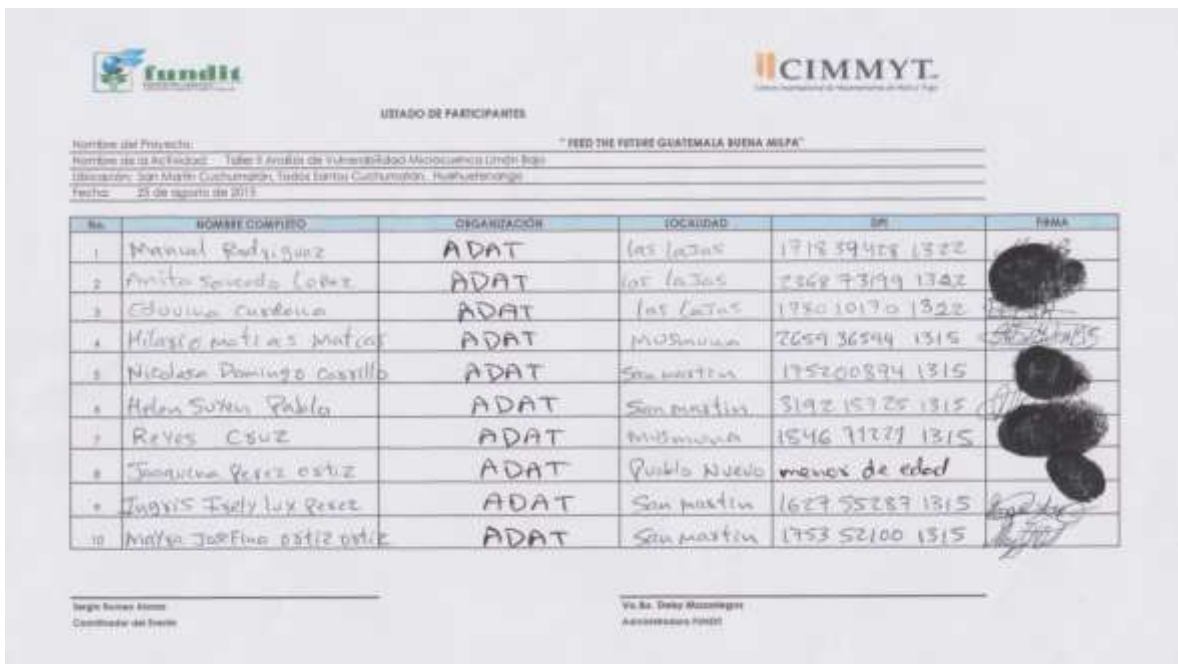 fundit
CIMMYT
LISTADO DE PARTICIPANTES
Nombre del Proyecto: "FEED THE FUTURE GUATEMALA BUENA MILPA"
Nombre de la Actividad: Taller II Análisis de Vulnerabilidad Microcuenca Limón Bajo
Ubicación: San Martín Cuchumatán, Todos Santos Cuchumatán, Huehuetenango
Fecha: 25 de agosto de 2015
No. NOMBRE COMPLETO ORGANIZACIÓN LOCALIDAD DPI FIRMA
1 Manuel Rodriguez ADAT las lajas 1718 39428 1322
2 Anita Lopez ADAT las lajas 2368 73199 1322
3 Cardona ADAT las lajas 1780 10170 1322
4 Hilario matias matias ADAT 2659 36594 1315
5 Nicolasa Domingo Carrillo ADAT San martin 1752 00894 1315
6 Helen Suxen Pablo ADAT San martin 3192 15725 1315
7 Reyes Cruz ADAT 1546 1315
8 Perez ortiz ADAT Pueblo Nuevo menor de edad
9 Ingris Isely lux Perez ADAT San martin 1627 55287 1315
10 Mayra Josefina ortiz ortiz ADAT San martin 1753 52100 1315
Coordinador del Evento
Vo.Bo.
Administradora FUNDIT